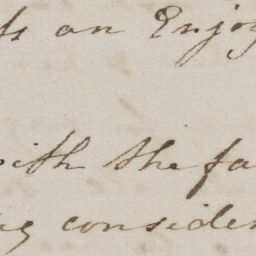 an Enjoy
with the fa
consider